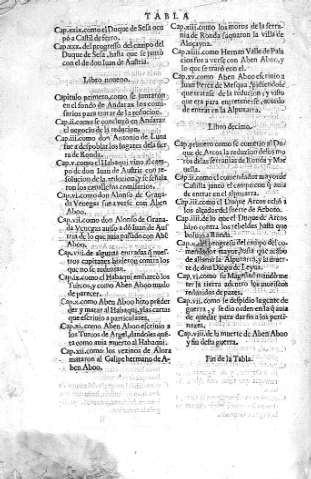 TABLA
Cap.xxix.como el Duque de Sesa ocu
pó a Castil de ferro.
Cap.xxx. del progresso del campo del
Duque de Sesa, hasta que se juntó
con el de don Iuan de Austria.
Libro noueno.
Capitulo primero, como se juntaron
en el fondo de Andarax los comis
sarios para tratar de la reducion.
Cap.ii.como se concluyó en Andarax
el negocio de la reducion.
Cap.iii.como don Antonio de Luna
fue a despoblar los lugares dela sier
ra de Ronda.
Cap.v.como el Habaqui vino al cam
po de don Iuan de Austria con re-
solucion de la reducion, y se señala
ron los comissarios
Cap.vi.como don Alonso de Grana
da Venegas fue a verse con Aben
Aboo.
Cap.vii.como don Alonso de Grana-
da Venegas auisó a dō Iuan de Aus
tria de lo que auia passado con Aben
Aboo.
Cap.viii.de algunas entradas q̃ nues-
tros capitanes hizieron contra los
que no se reduzian.
Cap.ix.como el Habaqui embarcó los
Turcos, y como Aben Aboo mudó
de parecer.
Cap.x.como Aben Aboo hizo prēder
y matar al Habaqui, y las cartas
que escriuio a particulares.
Cap.xi.como Aben Aboo escriuio a
los Turcos de Argel, dandoles cuē
ta como auia muerto al Habaqui.
Cap.xii.como los vezinos de Alora
mataron al Galipe hermano de A-
ben Aboo.
Cap.xiii.como los moros de la serra-
nia de Ronda saquearon la villa de
Aloçayna.
Cap.xiiii.como Hernan Valle de Pala
cios fue a verse con Aben Aboo, y
lo que se trató con el.
Cap.xv.como Aben Aboo escriuio a
Iuan Perez de Mesqua, pidiendole
que tratasse de la reducion; y visto
que era para entretenerse, acordó
de entrar en la Alpuxarra.
Libro decimo.
Cap.primero como se cometió al Du
que de Arcos la reducion de los mo
ros de las serranias de Ronda y Mar
uella.
Cap.ii.como el comendador mayor de
Castilla juntó el campo con q̃ auia
de entrar en el Alpuxarra.
Cap.iii.como el Duque de Arcos echó a
los alçados del fuerte de Arboto.
Cap.iiii.de lo que el Duque de Arcos
hizo contra los rebeldes hasta que
boluio a Ronda.
Cap.v.del progresso del campo del co-
mendador mayor, hasta que acabó
de allanar la Alpuxarra, y la muer-
te de don Diego de Leyua.
Cap.vi.como su Magestad mandó me
ter la tierra adentro los moriscos
reduzidos de pazes.
Cap.vii. como se despidio la gente de
guerra, y se dio orden en la q̃ auia
de quedar para dar fin a los perti-
nazes.
Cap.viii.de la muerte de Aben Aboo
y fin desta guerra.
Fin de la Tabla.